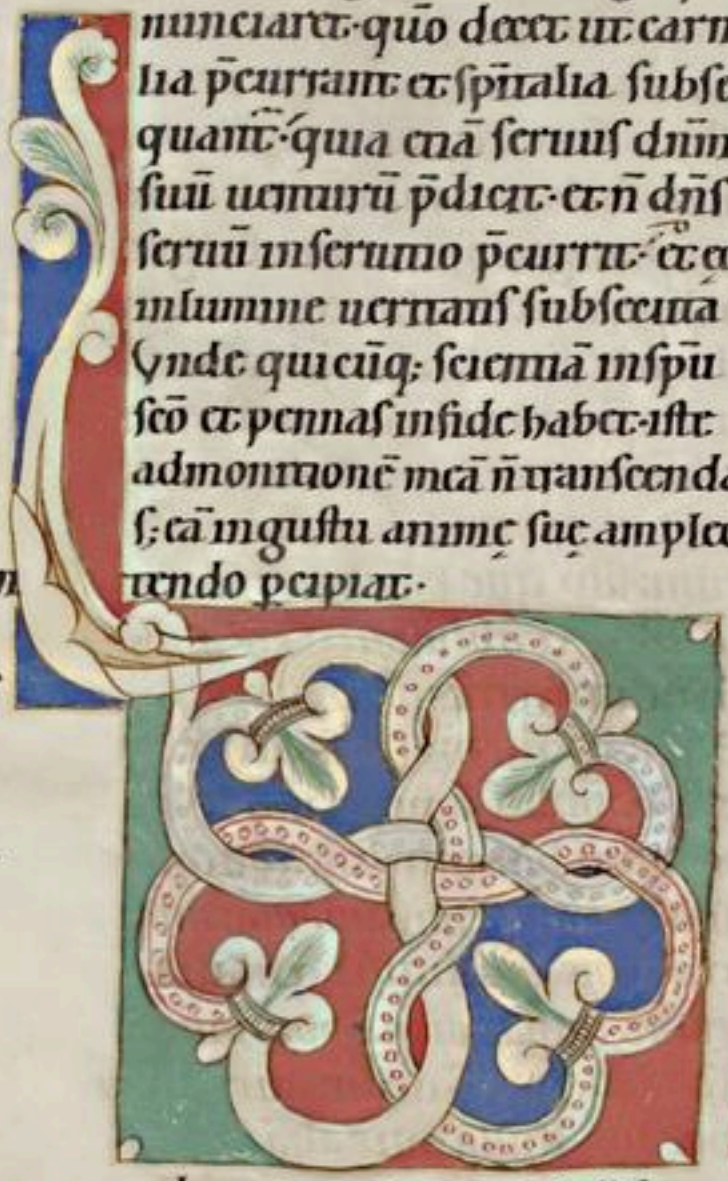 nunciaret·quō decet ut carn
lia p̄currant et sp̄italia subse
quant̄·quia etiā seruus dn̄m
suū uenturū p̄dicit·et n̄ dn̄s
seruū inseruitio p̄currit· et
inlumine ueritatis subsecuta
Vnde quicūq; scientiā insp̄u
sc̄o et pennas infide habet·iste
admonitionē meā n̄ transcenda
s; eā ingustu animę suę amplec
tendo ꝑcipiat·